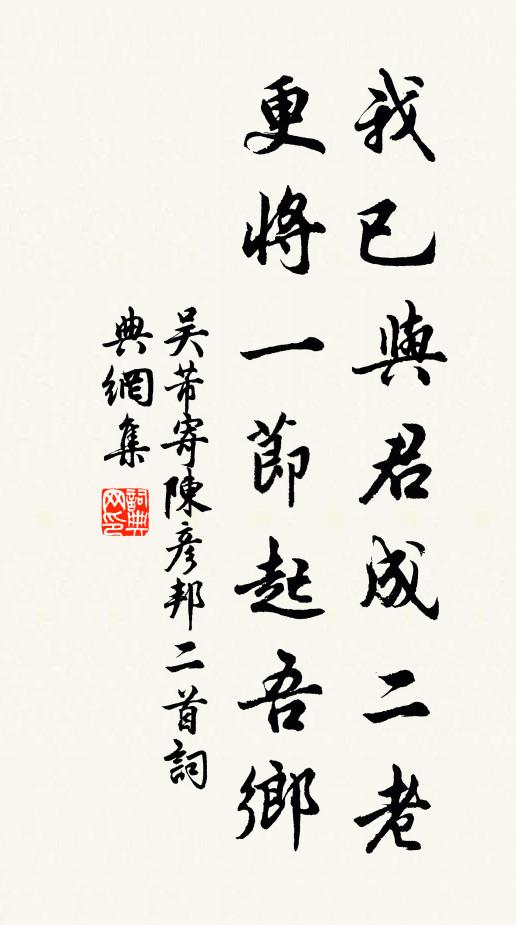 我已與君成二老
更將一節起吾鄉
吴芾寄陳彦邦二首詞
典網集
詞典网印